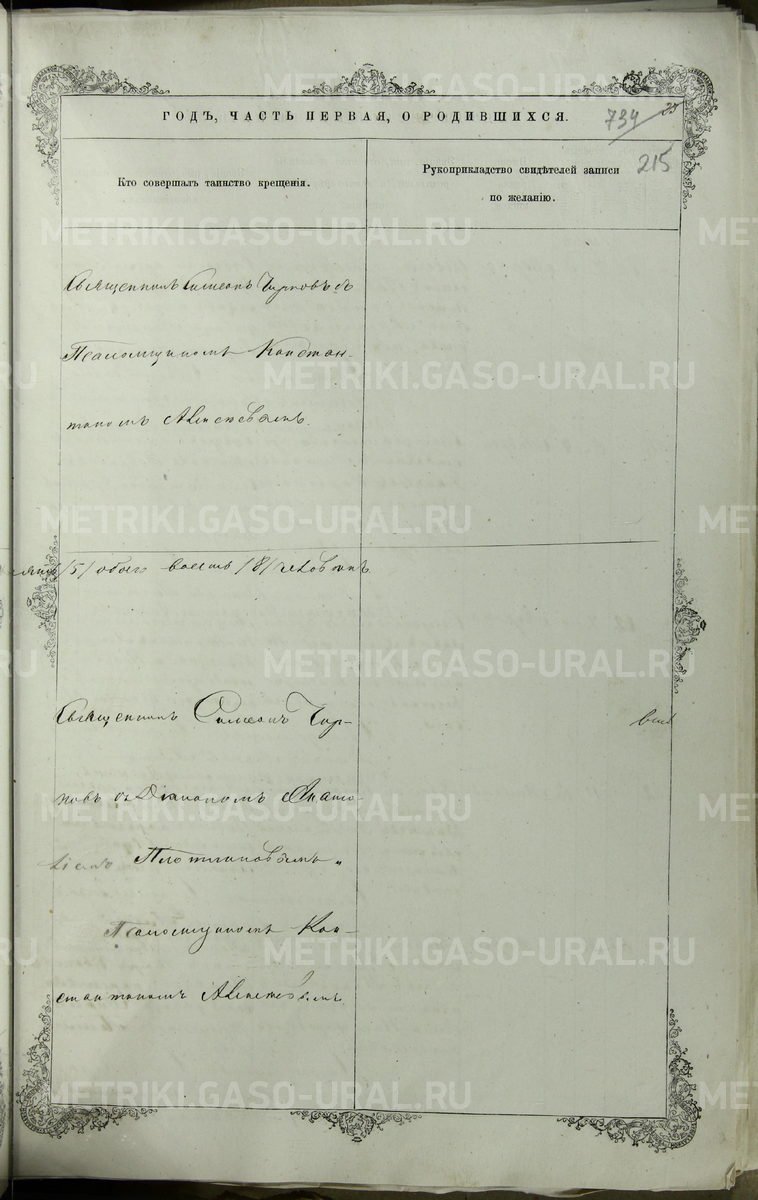 ГОДЪ, ЧАСТЬ ПЕРВАЯ, О РОДИВШИХСЯ.
734
215
Кто совершалъ таинство крещенія.
Рукоприкладство свидѣтелей записи
по желанію.
Священникъ Симеонъ съ
Псаломщикомъ Констан-
тиномъ Алексѣевымъ.
/5/ обоего /8/ человѣкъ
Священникъ Симеонъ
новъ съ Діакономъ Анато-
ліемъ Плотниковымъ и
Псаломщикомъ Кон-
стантиномъ Алексѣевымъ.
METRIKI.GASO-URAL.RU